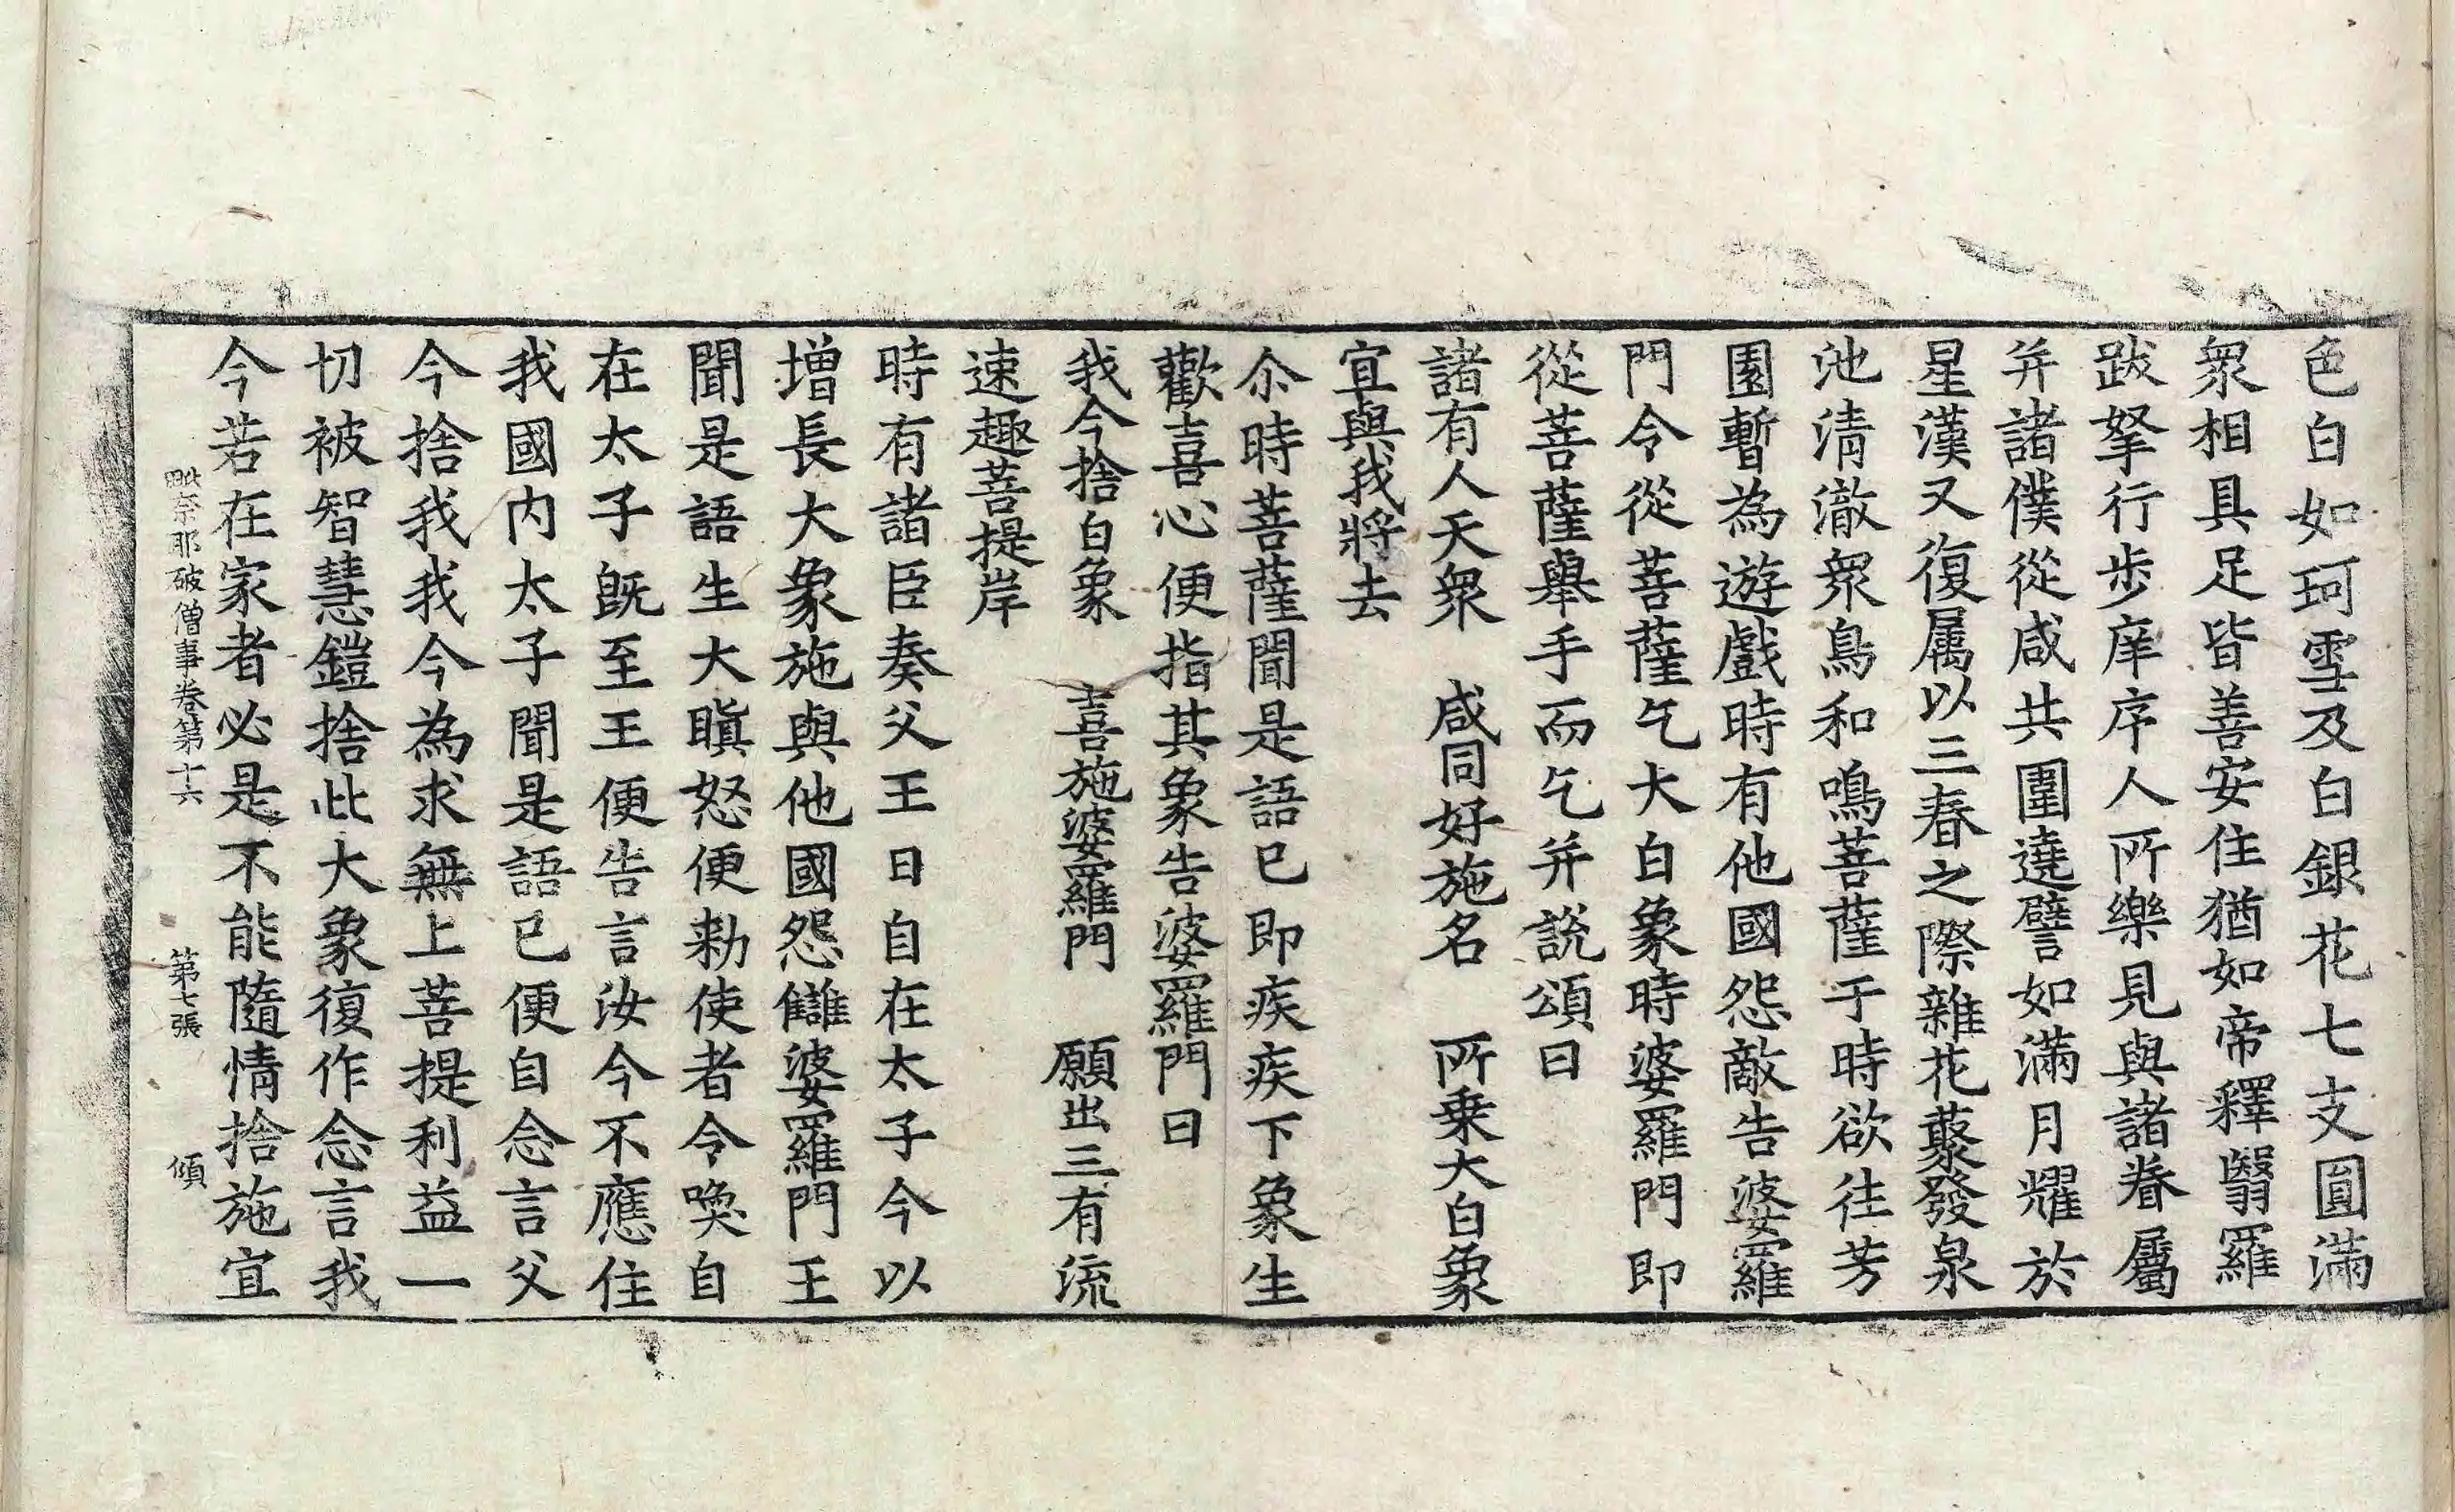 色白如珂雪及白銀花七支圓滿
衆相具足皆善安住猶如帝釋翳羅
跋拏行步庠序人所樂見與諸眷屬
并諸僕從咸共圍遶譬如滿月耀於
星漢又復属以三春之際雜花藂發泉
池清澈衆鳥和鳴菩薩于時欲往芳
園暫為遊戲時有他國怨敵告婆羅
門今從菩薩乞大白象時婆羅門即
從菩薩舉手而乞并說頌曰
諸有人天衆　咸同好施名　所乗大白象
宜與我將去
尒時菩薩聞是語已即疾疾下象生
歡喜心便指其象告婆羅門曰
我今捨白象　喜施婆羅門　願出三有流
速趣菩提岸
時有諸臣奏父王曰自在太子今以
增長大象施與他國怨讎婆羅門王
聞是語生大瞋怒便勑使者令喚自
在太子旣至王便告言汝今不應住
我國内太子聞是語已便自念言父
今捨我我今為求無上菩提利益一
切被智慧鎧捨此大象復作念言我
今若在家者必是不能隨情捨施宜
毗奈耶破僧事卷第十六　第七張　傾